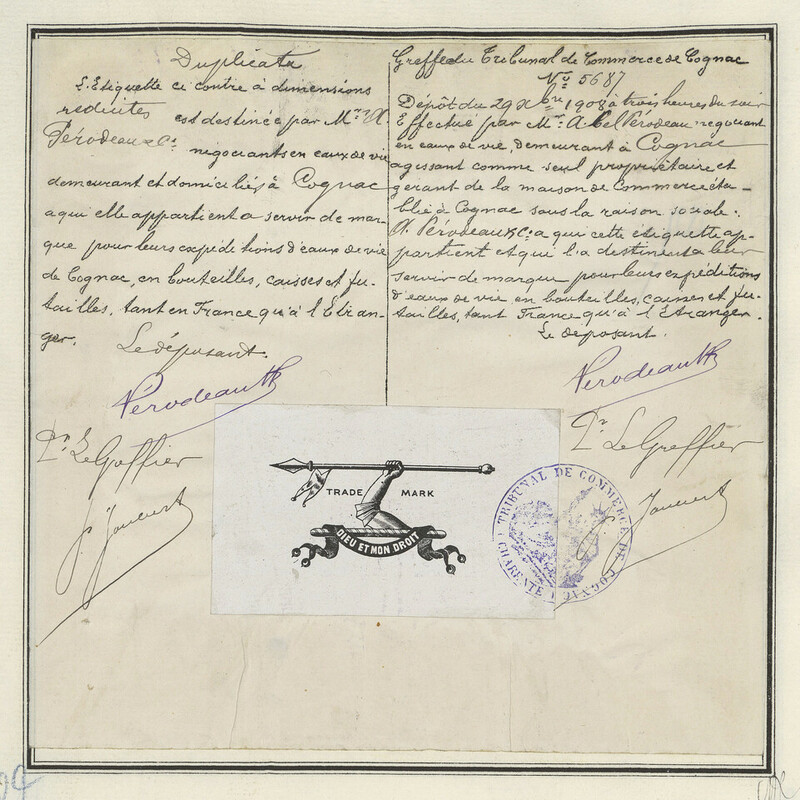 Duplicata
L'Etiquette ci contre à dimensions
réduites est destinée par Mrs A.
Pérodeau & Cie negociants en eaux de vie
demeurant et domiciliés à Cognac
a qui elle appartient a servir de mar-
que pour leurs expéditions d'eaux de vie
de Cognac, en bouteilles, caisses et fu-
tailles, tant en France qu'à l'Etran-
ger.
Le déposant.
Pérodeau
Pr Le Greffier
Greffe du Tribunal de Commerce de Cognac
No 5687
Dépôt du 29 Xbre 1908 à trois heures du soir
Effectué par Mr Abel Pérodeau negociant
en eaux de vie, demeurant à Cognac
agissant comme seul propriétaire et
gerant de la maison de Commerce éta-
blie à Cognac sous la raison sociale.
A. Pérodeau & Cie a qui cette étiquette ap-
partient et qui l'a destinée a leur
servir de marque pour leurs expéditions
d'eaux de vie en bouteilles, caisses et fu-
tailles, tant France qu'à l'Etranger.
Le deposant.
Pérodeau
Pr Le Greffier
TRADE MARK
DIEU ET MON DROIT
TRIBUNAL DE COMMERCE DE COGNAC
CHARENTE